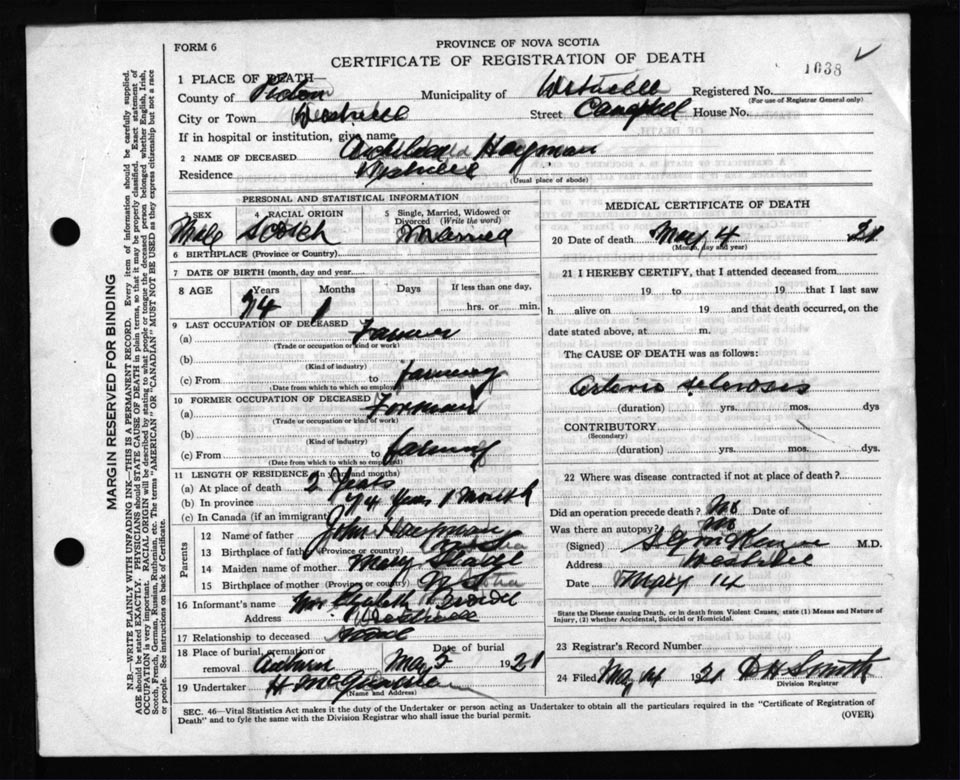 FORM 6
PROVINCE OF NOVA SCOTIA
CERTIFICATE OF REGISTRATION OF DEATH
1038
1 PLACE OF DEATH—
County of Pictou Municipality of Westville Registered No.
(For use of Registrar General only)
City or Town Westville Street Campbell House No.
If in hospital or institution, give name
2 NAME OF DECEASED Archibald Hayman
Residence Westville
(Usual place of abode)
PERSONAL AND STATISTICAL INFORMATION
3 SEX 4 RACIAL ORIGIN 5 Single, Married, Widowed or Divorced (Write the word)
Male Scotch Married
6 BIRTHPLACE (Province or Country)
7 DATE OF BIRTH (month, day and year)
8 AGE Years Months Days If less than one day,
74 1 hrs. or min.
9 LAST OCCUPATION OF DECEASED
(a) Farmer
(Trade or occupation or kind or work)
(b)
(Kind of industry)
(c) From to farming
(Date from which to which so employed)
10 FORMER OCCUPATION OF DECEASED
(a)
(Trade or occupation or kind of work)
(b)
(Kind of industry)
(c) From to farming
(Date from which to which so employed)
11 LENGTH OF RESIDENCE (in years and months)
(a) At place of death 2 Years
(b) In province 74 Years 1 Month
(c) In Canada (if an immigrant)
Parents
12 Name of father John Hayman
13 Birthplace of father (Province or country)
14 Maiden name of mother Mary
15 Birthplace of mother (Province or country) N S
16 Informant's name Mrs Elizabeth
Address Westville
17 Relationship to deceased
18 Place of burial, cremation or removal Auburn Date of burial May 5 1921
19 Undertaker H
(Name and Address)
MEDICAL CERTIFICATE OF DEATH
20 Date of death May 4 21
(Month, day and year)
21 I HEREBY CERTIFY, that I attended deceased from
19 to 19 that I last saw
h alive on 19 and that death occurred, on the
date stated above, at m.
The CAUSE OF DEATH was as follows:
Arterio sclerosis
(duration) yrs. mos. dys
CONTRIBUTORY
(Secondary)
(duration) yrs. mos. dys.
22 Where was disease contracted if not at place of death?
Did an operation precede death? No Date of
Was there an autopsy? No
(Signed) M.D.
Address Westville
Date May 14
State the Disease causing Death, or in death from Violent Causes, state (1) Means and Nature of
Injury, (2) whether Accidental, Suicidal or Homicidal.
23 Registrar's Record Number
24 Filed May 14 1921 D H Smith
Division Registrar
SEC. 46—Vital Statistics Act makes it the duty of the Undertaker or person acting as Undertaker to obtain all the particulars required in the "Certificate of Registration of
Death" and to fyle the same with the Division Registrar who shall issue the burial permit.
(OVER)
MARGIN RESERVED FOR BINDING
N.B.—WRITE PLAINLY WITH UNFADING INK—THIS IS A PERMANENT RECORD. Every item of information should be carefully supplied.
AGE should be stated EXACTLY. PHYSICIANS should STATE CAUSE OF DEATH in plain terms, so that it may be properly classified. Exact statement of
OCCUPATION is very important. RACIAL ORIGIN will be described by stating to what people or tongue the deceased person belonged whether English, Irish,
Scotch, French, German, Russian, Ruthenian, etc. The terms "AMERICAN" OR "CANADIAN" MUST NOT BE USED as they express citizenship but not a race
or people. See instructions on back of Certificate.